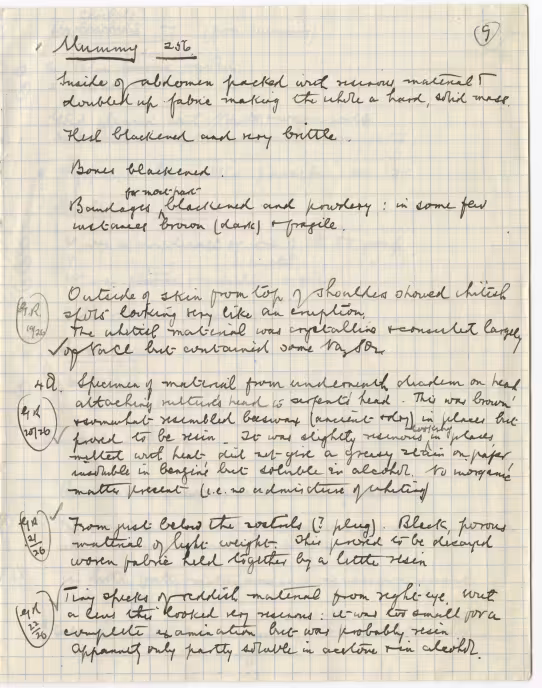 9
Mummy 256.
Inside of abdomen packed with resinous material &
doubled up fabric making the whole a hard, solid mass.
Flesh blackened and very brittle.
Bones blackened.
for most part
Bandages blackened and powdery : in some few
instances brown (dark) & fragile.
Outside of skin from top of shoulders showed whitish
G.R.
19/26
spots looking very like an eruption.
The whitish material was crystalline & consisted largely
of NaCl but contained some Na2SO4.
4Q. Specimen of material from underneath diadem on head
attaching vulture's head & serpent's head. This was brown
G R
20/26
& somewhat resembled beeswax (ancient & dry) in places but
proved to be resin. It was slightly resinous in places,
melted with heat did not give a greasy stain on paper
insoluble in benzine but soluble in alcohol. No inorganic
matter present (i.e. no admixture of whiting)
GR
21/26
From just below the nostrils (? plug). Black, porous
material of light weight. This proved to be decayed
woven fabric held together by a little resin
GR
22/26
Tiny specks of reddish material from right eye. With
a lens this looked very resinous : it was too small for a
complete examination but was probably resin
Apparently only partly soluble in acetone & in alcohol.